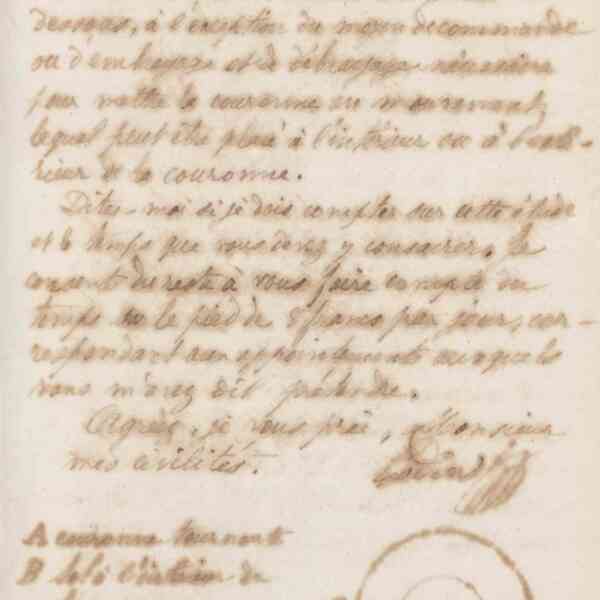 dessous, à l'exception du moyen de commande
ou d'embrayage et de débrayage nécessaire
pour mettre la couronne en mouvement,
lequel peut être placé à l'intérieur ou à l'exté-
rieur de la couronne.
Dites-moi si je dois compter sur cette étude
et le temps que vous devez y consacrer. Je
consent du reste à vous faire compte du
temps sur le pied de 8 francs par jour, cor-
respondant aux appointements auxquels
vous m'avez dit prétendre.
Agréez, je vous prie, Monsieur
mes civilités.
Godin
A couronne tournant
B à l'intérieur de